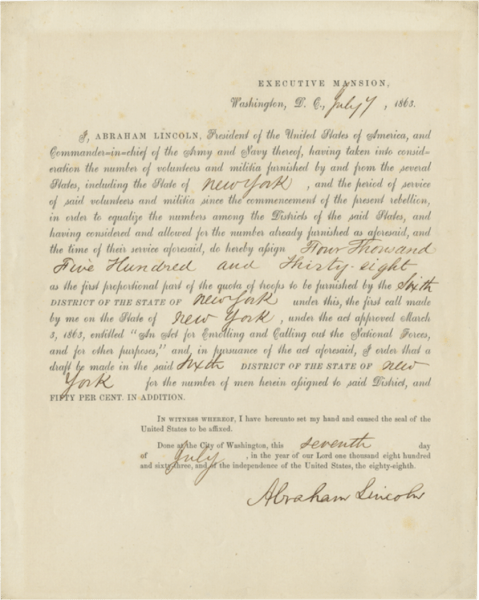 EXECUTIVE MANSION,
Washington, D. C., July 7, 1863.
I, ABRAHAM LINCOLN, President of the United States of America, and
Commander-in-chief of the Army and Navy thereof, having taken into consid-
eration the number of volunteers and militia furnished by and from the several
States, including the State of New York, and the period of service
of said volunteers and militia since the commencement of the present rebellion,
in order to equalize the numbers among the Districts of the said States, and
having considered and allowed for the number already furnished as aforesaid, and
the time of their service aforesaid, do hereby assign Four Thousand
Five Hundred and Thirty-eight
as the first proportional part of the quota of troops to be furnished by the Sixth
DISTRICT OF THE STATE OF New York under this, the first call made
by me on the State of New York, under the act approved March
3, 1863, entitled "An Act for Enrolling and Calling out the National Forces,
and for other purposes," and in pursuance of the act aforesaid, I order that a
draft be made in the said Sixth DISTRICT OF THE STATE OF New
York for the number of men herein assigned to said District, and
FIFTY PER CENT. IN ADDITION.
IN WITNESS WHEREOF, I have hereunto set my hand and caused the seal of the
United States to be affixed.
Done at the City of Washington, this seventh day
of July, in the year of our Lord one thousand eight hundred
and sixty-three, and of the independence of the United States, the eighty-eighth.
Abraham Lincoln